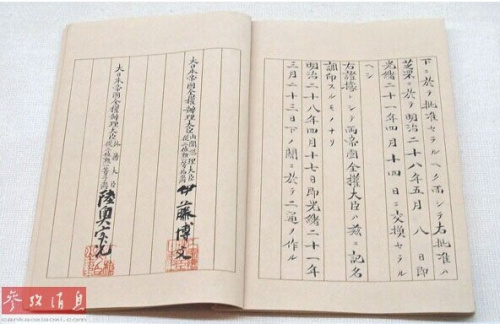 下ニ於テ批准セラルヘク而シテ右批准ハ
芝罘ニ於テ明治二十八年五月八日即
光緒二十一年四月十四日ニ交換セラル
ヘシ
右證據トシテ兩帝國全權大臣ハ茲ニ記名
調印スルモノナリ
明治二十八年四月十七日即光緒二十一年
三月二十三日下ノ關ニ於テ二通ヲ作ル
大日本帝國全權辦理大臣內閣總理大臣
伊藤博文
大日本帝國全權辦理大臣外務大臣
陸奧宗光
参考消息